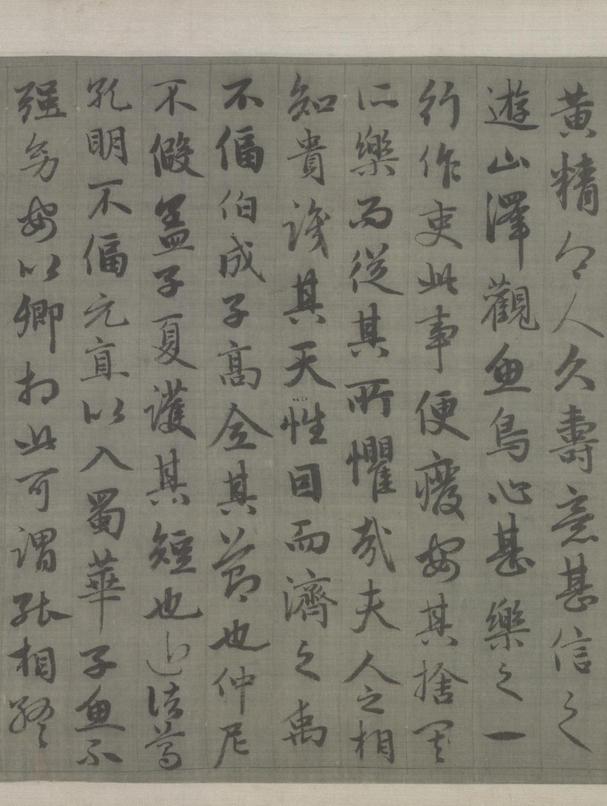 黄精令人久壽意甚信之
遊山澤觀魚鳥心甚樂之一
行作吏此事便癈安其捨其
所樂而從其所懼哉夫人之相
知貴識其天性因而濟之禹
不偪伯成子髙全其節也仲尼
不假盖子夏護其短也近諸葛
孔明不偪元直以入蜀華子魚不
强幼安以卿相此可謂能相終